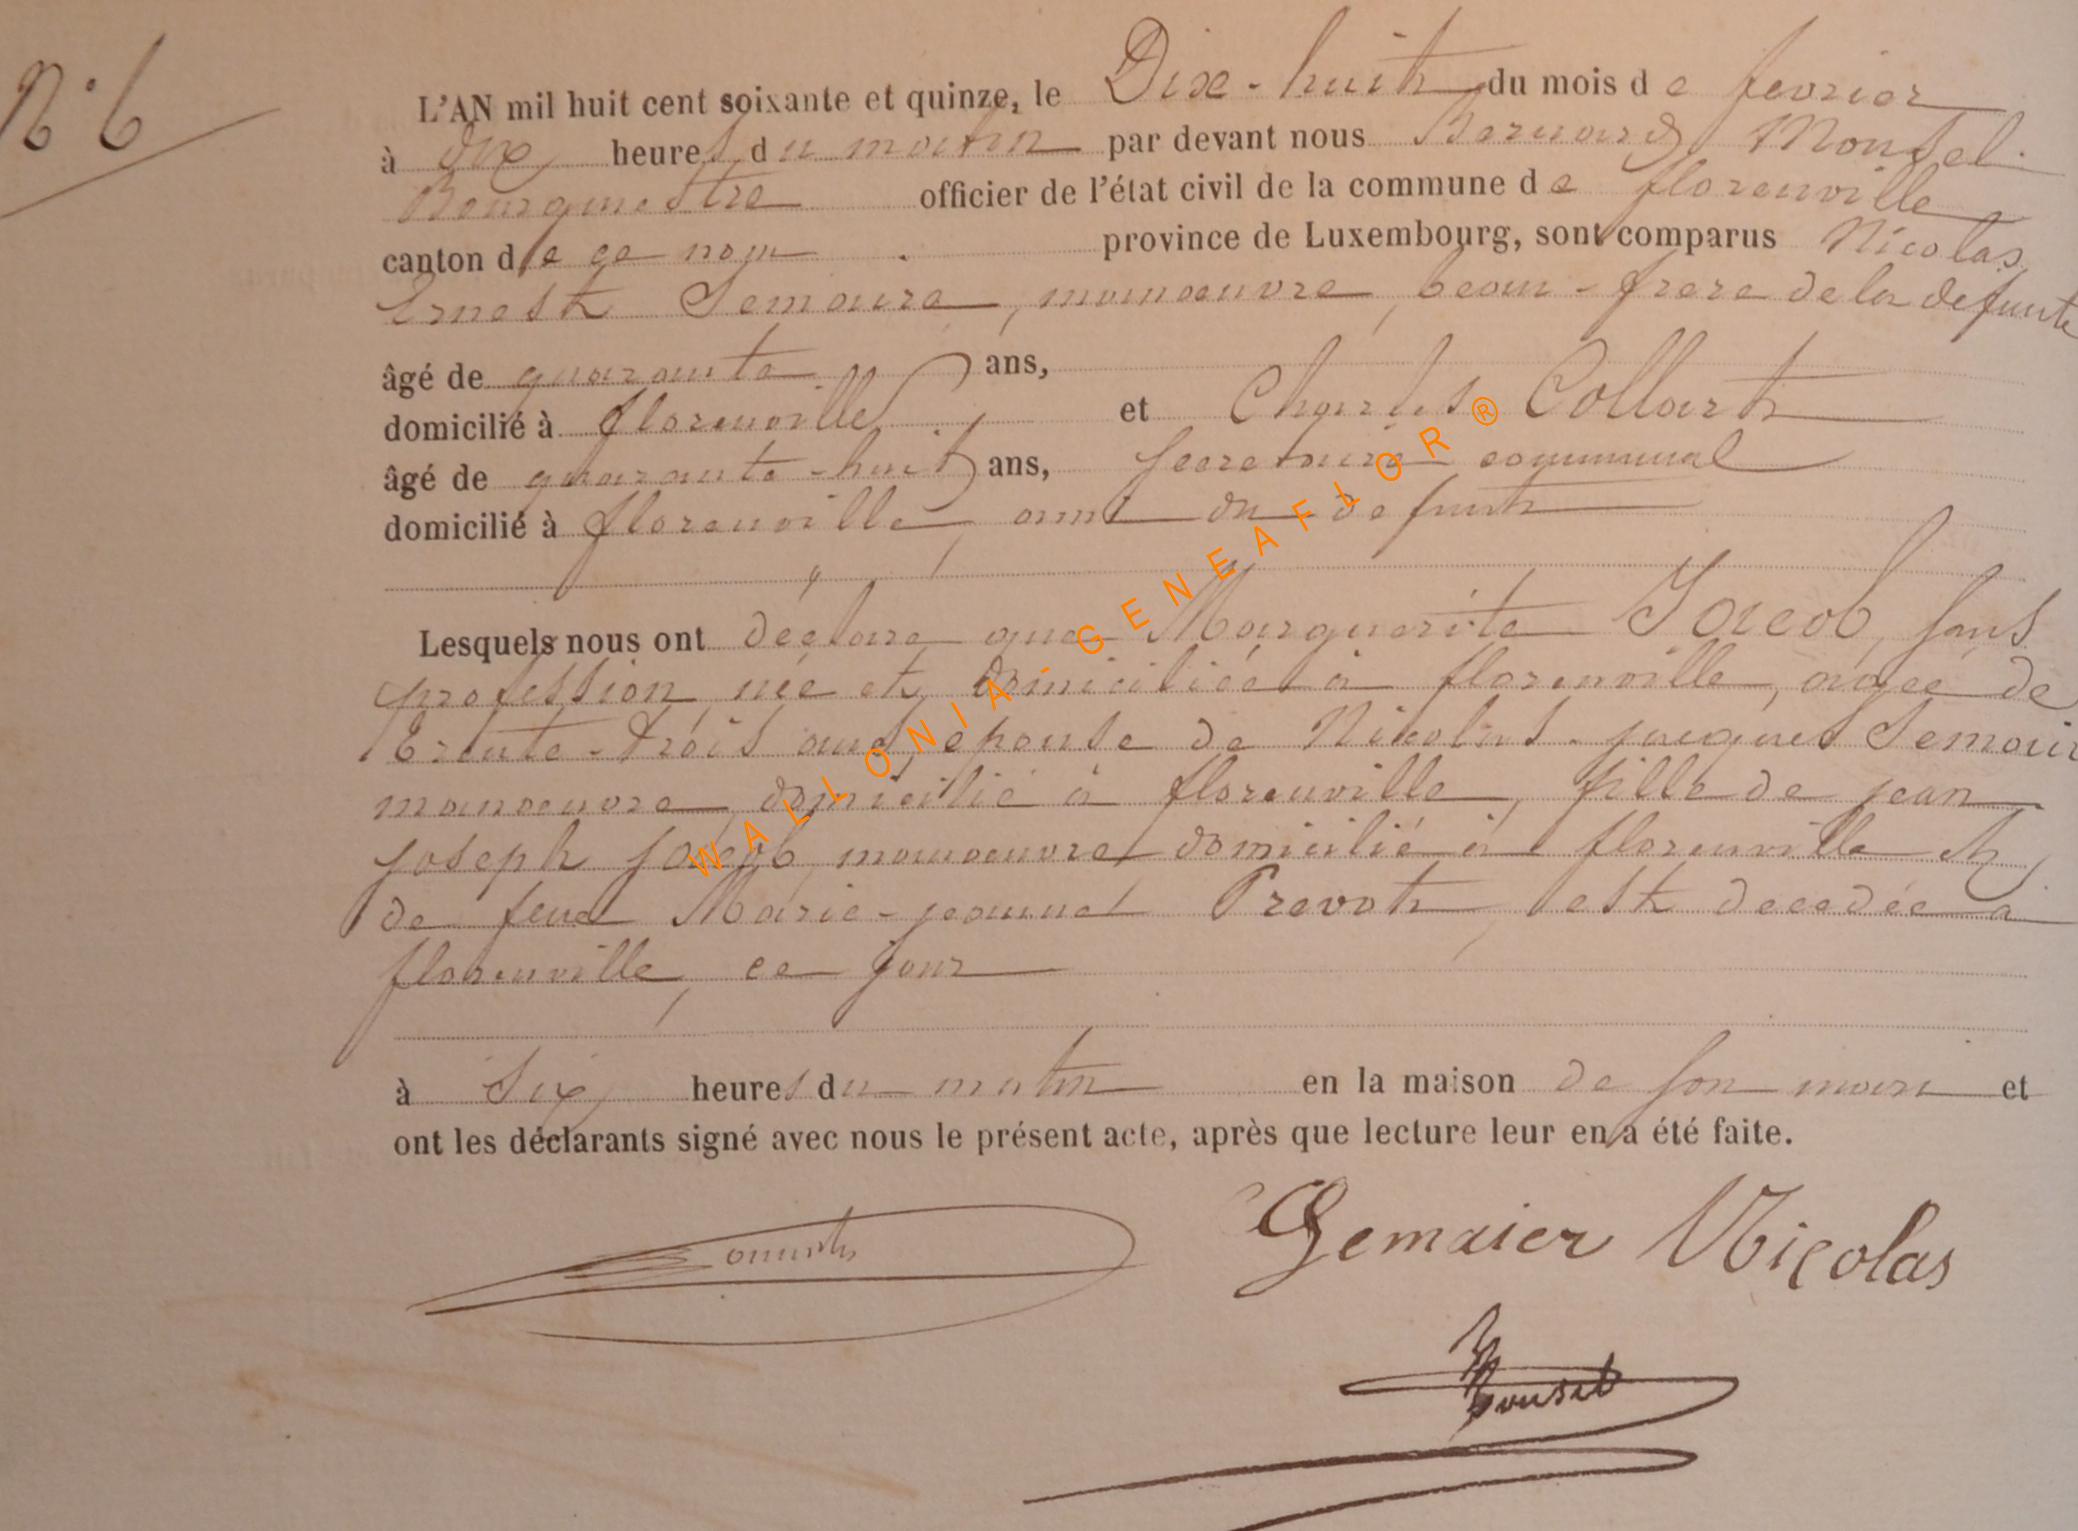 N° 6
L'AN mil huit cent soixante et quinze, le Dix-huit du mois de fevrier
à dix heures du matin par devant nous Bernard Monsel
Bourgmestre officier de l'état civil de la commune de florenville
canton de ce nom province de Luxembourg, sont comparus Nicolas
Ernest Semaire, manoeuvre, beau-frere de la defunte
âgé de quarante ans,
domicilié à florenville et Charles Collart
âgé de quarante-huit ans, secretaire communal
domicilié à florenville, ami du defunt
Lesquels nous ont déclare que Marguerite Jacob, sans
profession, née et domiciliée à florenville, agée de
trente-trois ans, epouse de Nicolas jacques Semair
manoeuvre, domicilié à florenville, fille de jean
joseph jacob, manoeuvre domicilié à florenville et
de feue Marie-jeanne Prevot, est decedée à
florenville, ce jour
à six heures du matin en la maison de son mari et
ont les déclarants signé avec nous le présent acte, après que lecture leur en a été faite.
Semaier Nicolas
Monsel
WALLONIA-GENEAFLOR®